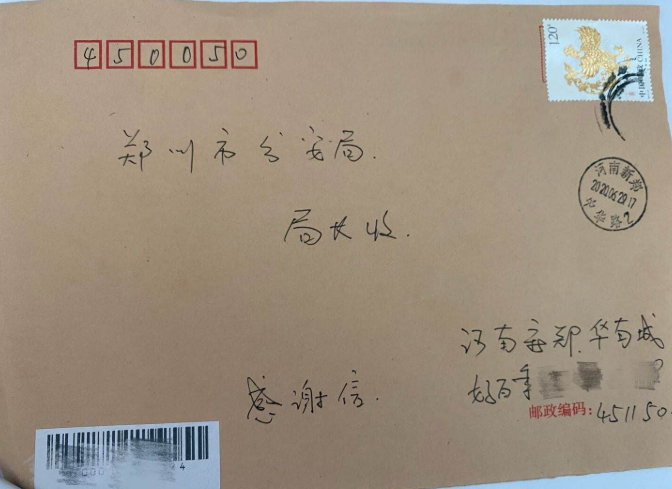 450050
120
中国邮政 CHINA
郑州市公安局.
河南新郑
2020.06.29.17
中华路2
局长收.
河南新郑.华南城
好百年
感谢信.
邮政编码:451150
4